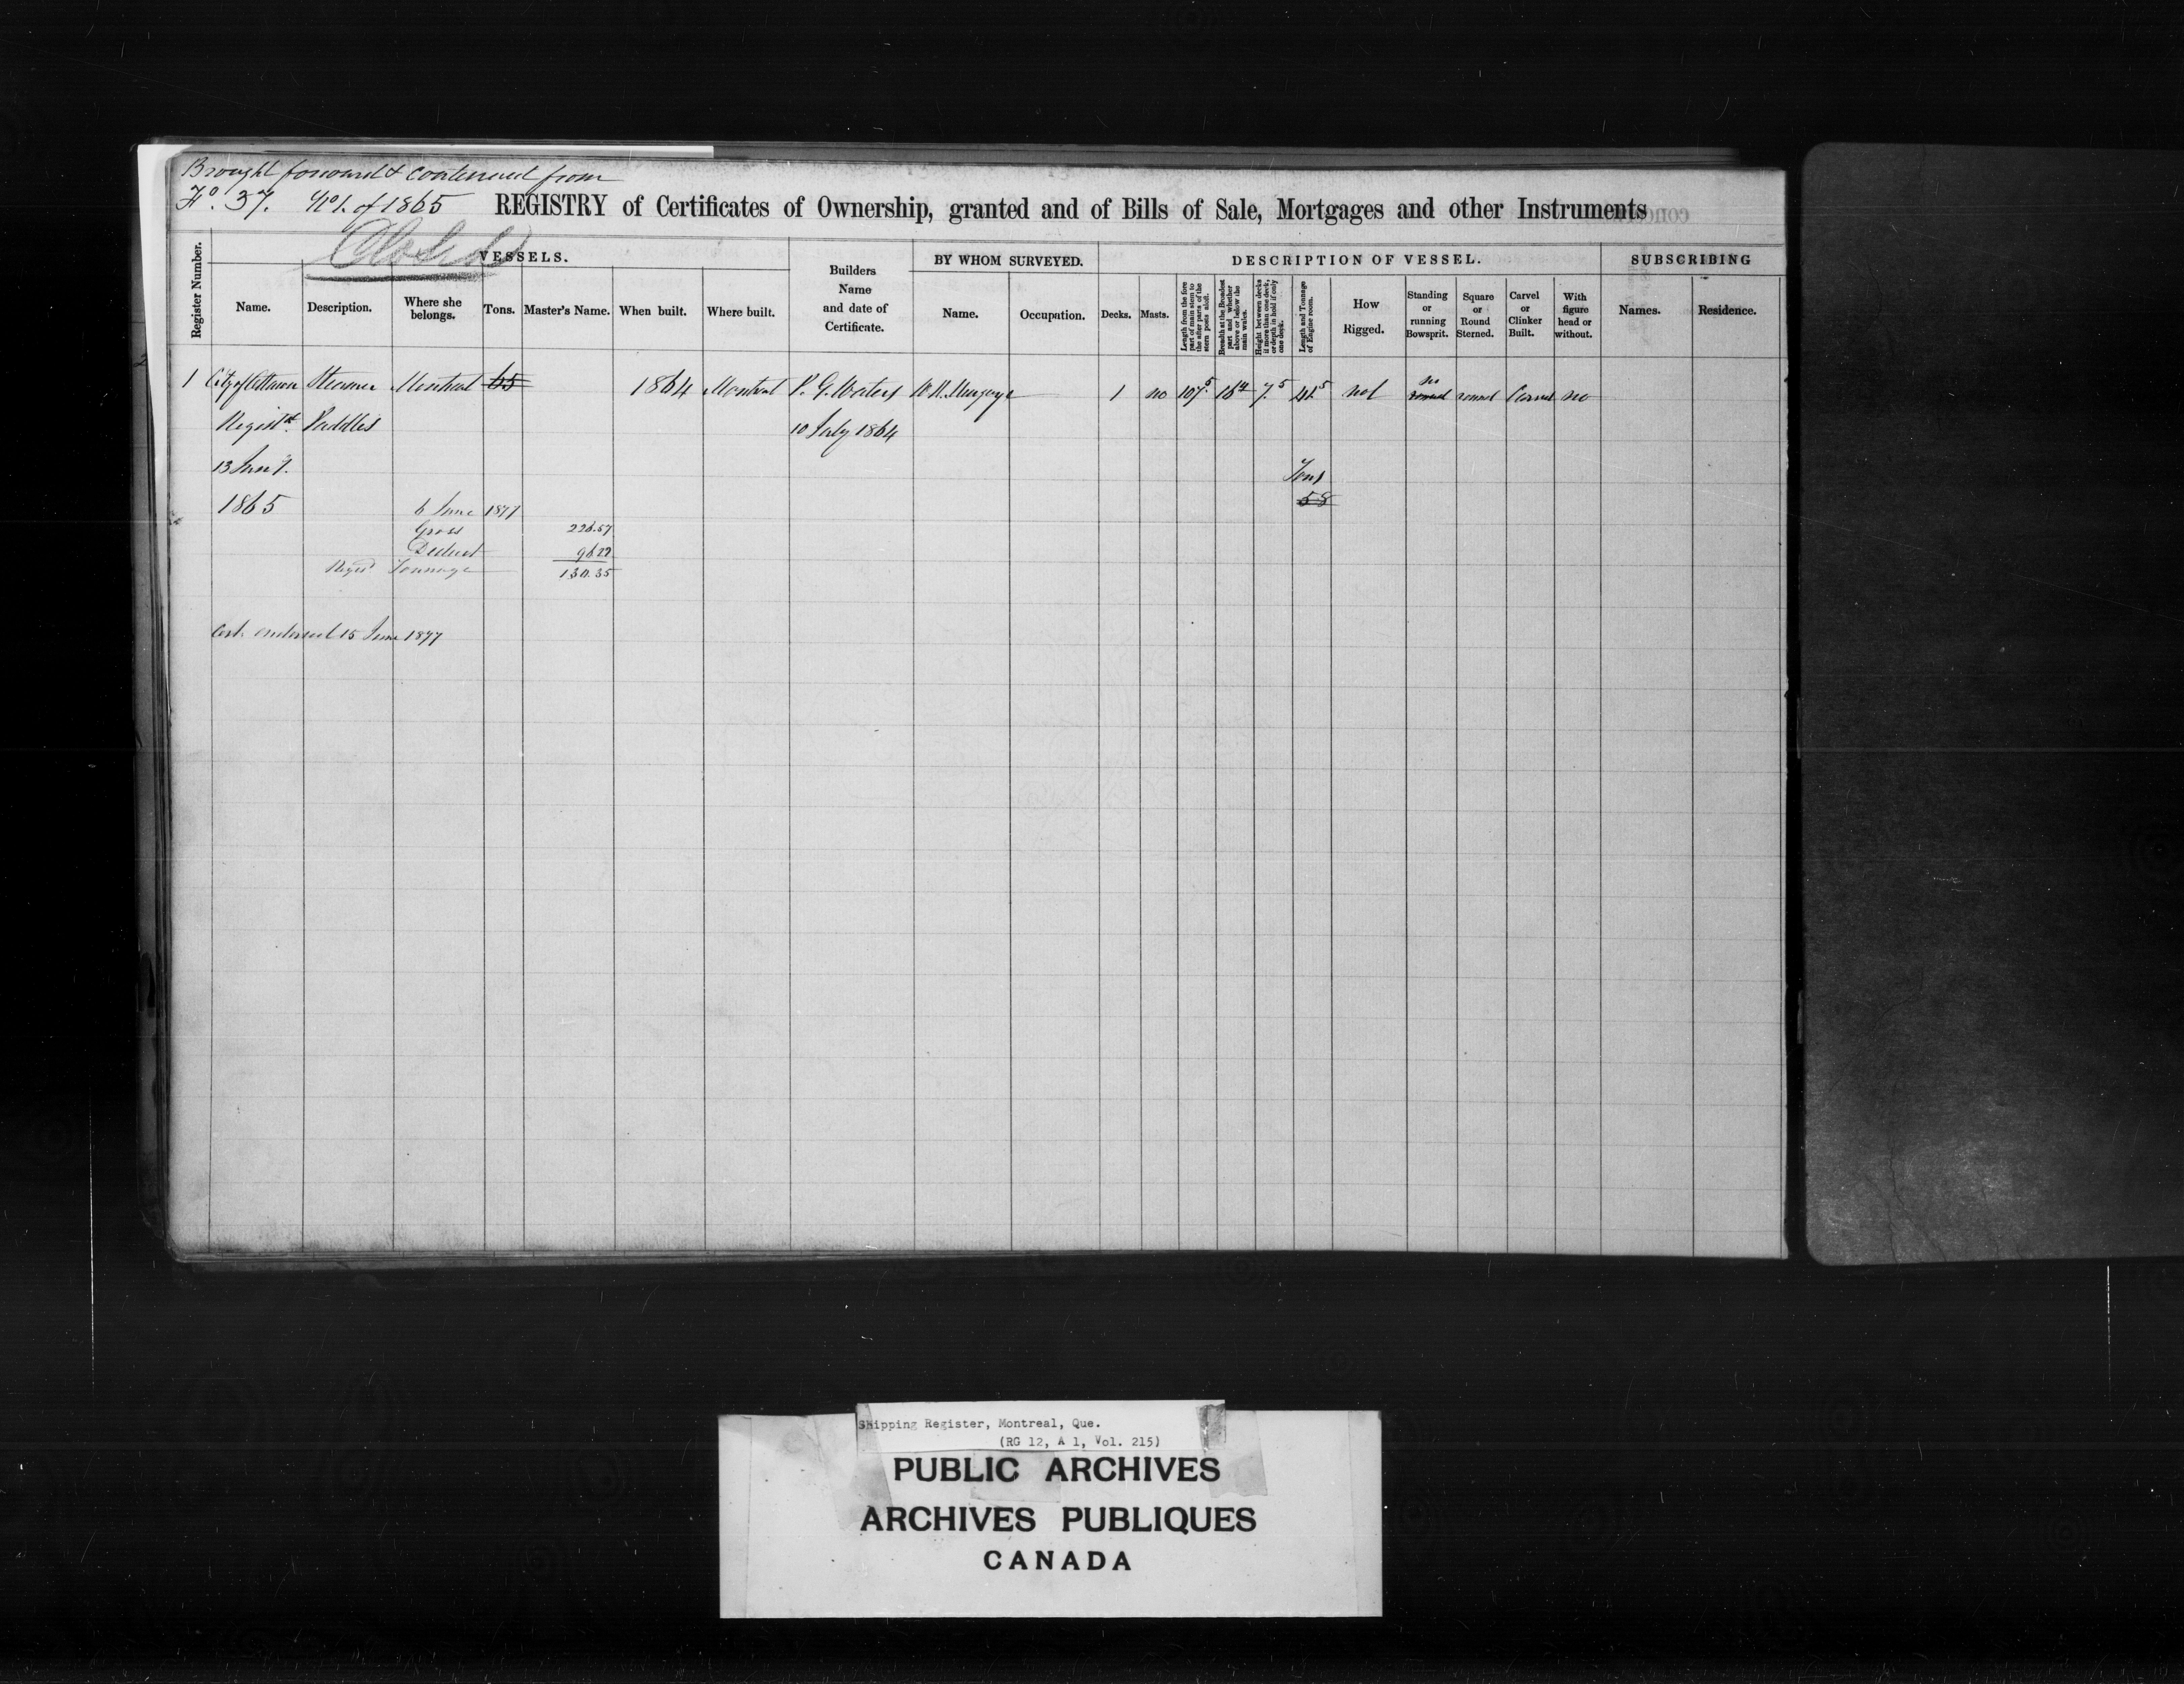 Brought forward & continued from
Fo. 37. No 1. of 1865 REGISTRY of Certificates of Ownership, granted and of Bills of Sale, Mortgages and other Instruments
Closed
Register Number.
VESSELS.
Name. Description. Where she belongs. Tons. Master's Name. When built. Where built.
Builders Name and date of Certificate.
BY WHOM SURVEYED.
Name. Occupation.
DESCRIPTION OF VESSEL.
Decks. Masts. Length from the fore part of main stem to the after parts of the stern posts aloft. Breadth at the Broadest part and whether above or below the main wales. Height between decks if more than one deck, or depth in hold if only one deck. Length and Tonnage of Engine room. How Rigged. Standing or running Bowsprit. Square or Round Sterned. Carvel or Clinker Built. With figure head or without.
SUBSCRIBING
Names. Residence.
no
1 City of Ottawa Steamer Montreal 65 1864 Montreal P. G. Waters 1 no 107.5 7.5 not round round Carvel no
Registd. Paddles 10 July 1864
13
Tons
1865 6 June 1877 58
Gross 226.57
Deduct 96.22
Regd Tonnage 130.35
Cert. endorsed 15 June 1877
Shipping Register, Montreal, Que.
(RG 12, A 1, Vol. 215)
PUBLIC ARCHIVES
ARCHIVES PUBLIQUES
CANADA